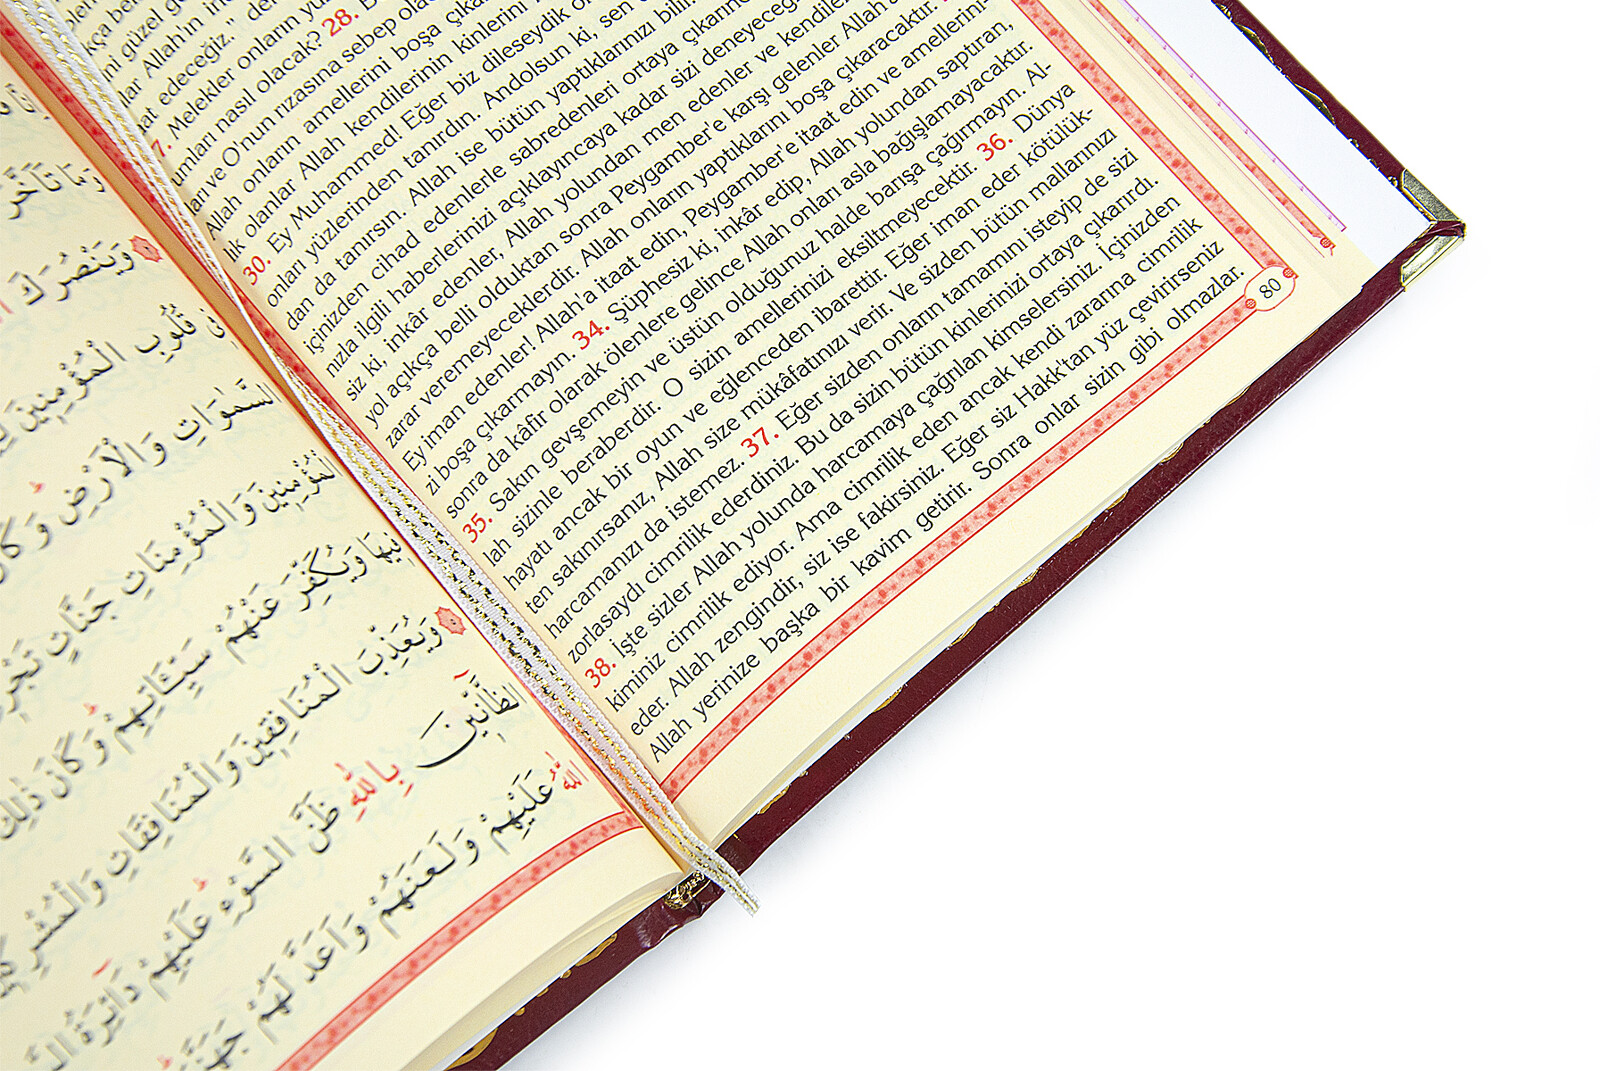 28.
edeceğiz."
7. Melekler onların
nasıl olacak?
ve O'nun rızasına sebep
Allah onların amellerini boşa
olanlar Allah kendilerinin kinlerini
30. Ey Muhammed! Eğer biz dileseydik
onları yüzlerinden tanırdın. Andolsun ki, sen
dan da tanırsın. Allah ise bütün yaptıklarınızı bilir.
içinizden cihad edenlerle sabredenleri ortaya
nızla ilgili haberlerinizi açıklayıncaya kadar sizi deneyeceğ
siz ki, inkâr edenler, Allah yolundan men edenler ve
yol açıkça belli olduktan sonra Peygamber'e karşı gelenler Allah'a
zarar veremeyeceklerdir. Allah onların yaptıklarını boşa çıkaracaktır.
Ey iman edenler! Allah'a itaat edin, Peygamber'e itaat edin ve amellerini-
zi boşa çıkarmayın. 34. Şüphesiz ki, inkâr edip, Allah yolundan saptıran,
sonra da kâfir olarak ölenlere gelince Allah onları asla bağışlamayacaktır.
35. Sakın gevşemeyin ve üstün olduğunuz halde barışa çağırmayın. Al-
lah sizinle beraberdir. O sizin amellerinizi eksiltmeyecektir. 36. Dünya
hayatı ancak bir oyun ve eğlenceden ibarettir. Eğer iman eder kötülük-
ten sakınırsanız, Allah size mükâfatınızı verir. Ve sizden bütün mallarınızı
harcamanızı da istemez. 37. Eğer sizden onların tamamını isteyip de sizi
zorlasaydı cimrilik ederdiniz. Bu da sizin bütün kinlerinizi ortaya çıkarırdı.
38. İşte sizler Allah yolunda harcamaya çağrılan kimselersiniz. İçinizden
kiminiz cimrilik ediyor. Ama cimrilik eden ancak kendi zararına cimrilik
eder. Allah zengindir, siz ise fakirsiniz. Eğer siz Hakk'tan yüz çevirirseniz
Allah yerinize başka bir kavim getirir. Sonra onlar sizin gibi olmazlar.
80
وَمَا تَاَخَّرَ
وَيَنْصُرَكَ
قُلُوبِ الْمُؤْمِنِينَ
السَّمٰوَاتِ وَالْاَرْضِ وَكَانَ
الْمُؤْمِنِينَ وَالْمُؤْمِنَاتِ جَنَّاتٍ تَجْرِي
فِيهَا وَيُكَفِّرَ عَنْهُمْ سَيِّـَٔاتِهِمْ وَكَانَ ذٰلِكَ
وَيُعَذِّبَ الْمُنَافِقِينَ وَالْمُنَافِقَاتِ وَالْمُشْرِكِينَ
الظَّٓانِّينَ بِاللّٰهِ ظَنَّ السَّوْءِ عَلَيْهِمْ دَٓائِرَةُ
اللّٰهُ عَلَيْهِمْ وَلَعَنَهُمْ وَاَعَدَّ لَهُمْ جَهَنَّمَ